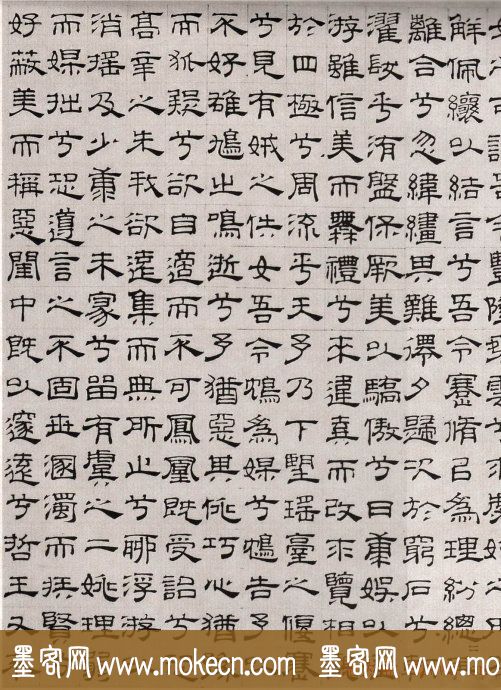 解佩纕以結言兮吾令蹇脩以為理紛總
離合兮忽緯繣其難遷夕歸次於窮石兮
濯髮乎洧盤保厥美以驕傲兮日康娛以
游雖信美而無禮兮來違棄而改求覽相
於四極兮周流乎天予乃下望瑤臺之偃蹇
兮見有娀之佚女吾令鴆為媒兮鴆告予
不好雄鳩之鳴逝兮予猶惡其佻巧心猶
而狐疑兮欲自適而不可鳳凰既受詔兮
高辛之先我欲遠集而無所止兮聊浮游
消搖及少康之未家兮留有虞之二姚理弱
而媒拙兮恐導言之不固世溷濁而疾賢
好蔽美而稱惡閨中既以邃遠兮哲王又
墨客网 www.mokecn.com 墨客网 www.mokecn.com